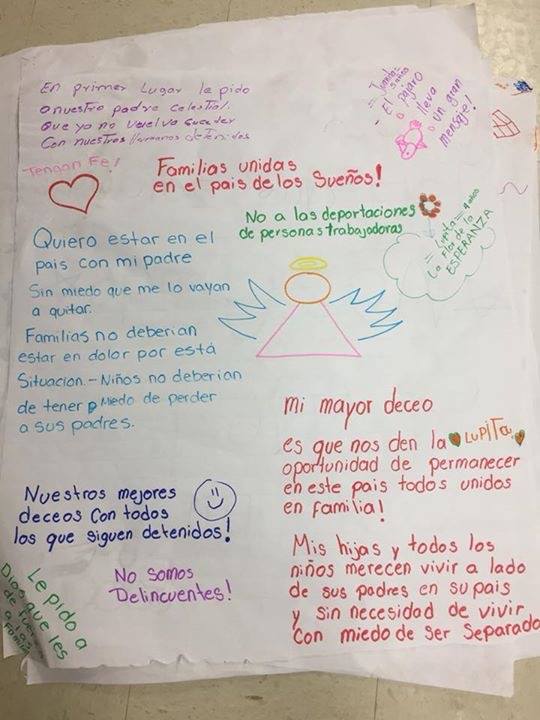 En primer Lugar le pido
a nuestro padre celestial.
Que ya no vuelva suceder
Con nuestros Hermanos detenidos
Tengan Fe!
= Juanita=
El pajaro
lleva
un gran
mensaje!
Familias unidas
en el pais de los Sueños!
No a las deportaciones
de personas trabajadoras
= Lupita = 9 años
La Flor de la
ESPERANZA
Quiero estar en el
pais con mi padre
Sin miedo que me lo vayan
a quitar.
Familias no deberian
estar en dolor por está
Situacion.- Niños no deberian
de tener miedo de perder
a sus padres.
mi mayor deceo
es que nos den la
LUPITA
oportunidad de permanecer
en este pais todos unidos
en familia!
Nuestros mejores
deceos con todos
los que siguen detenidos!
Mis hijas y todos los
niños merecen vivir a lado
de sus padres en su pais
y sin necesidad de vivir
con miedo de ser separado
No somos
Delincuentes!
Le pido a
Dios que les
de fuerza
a las
Familias